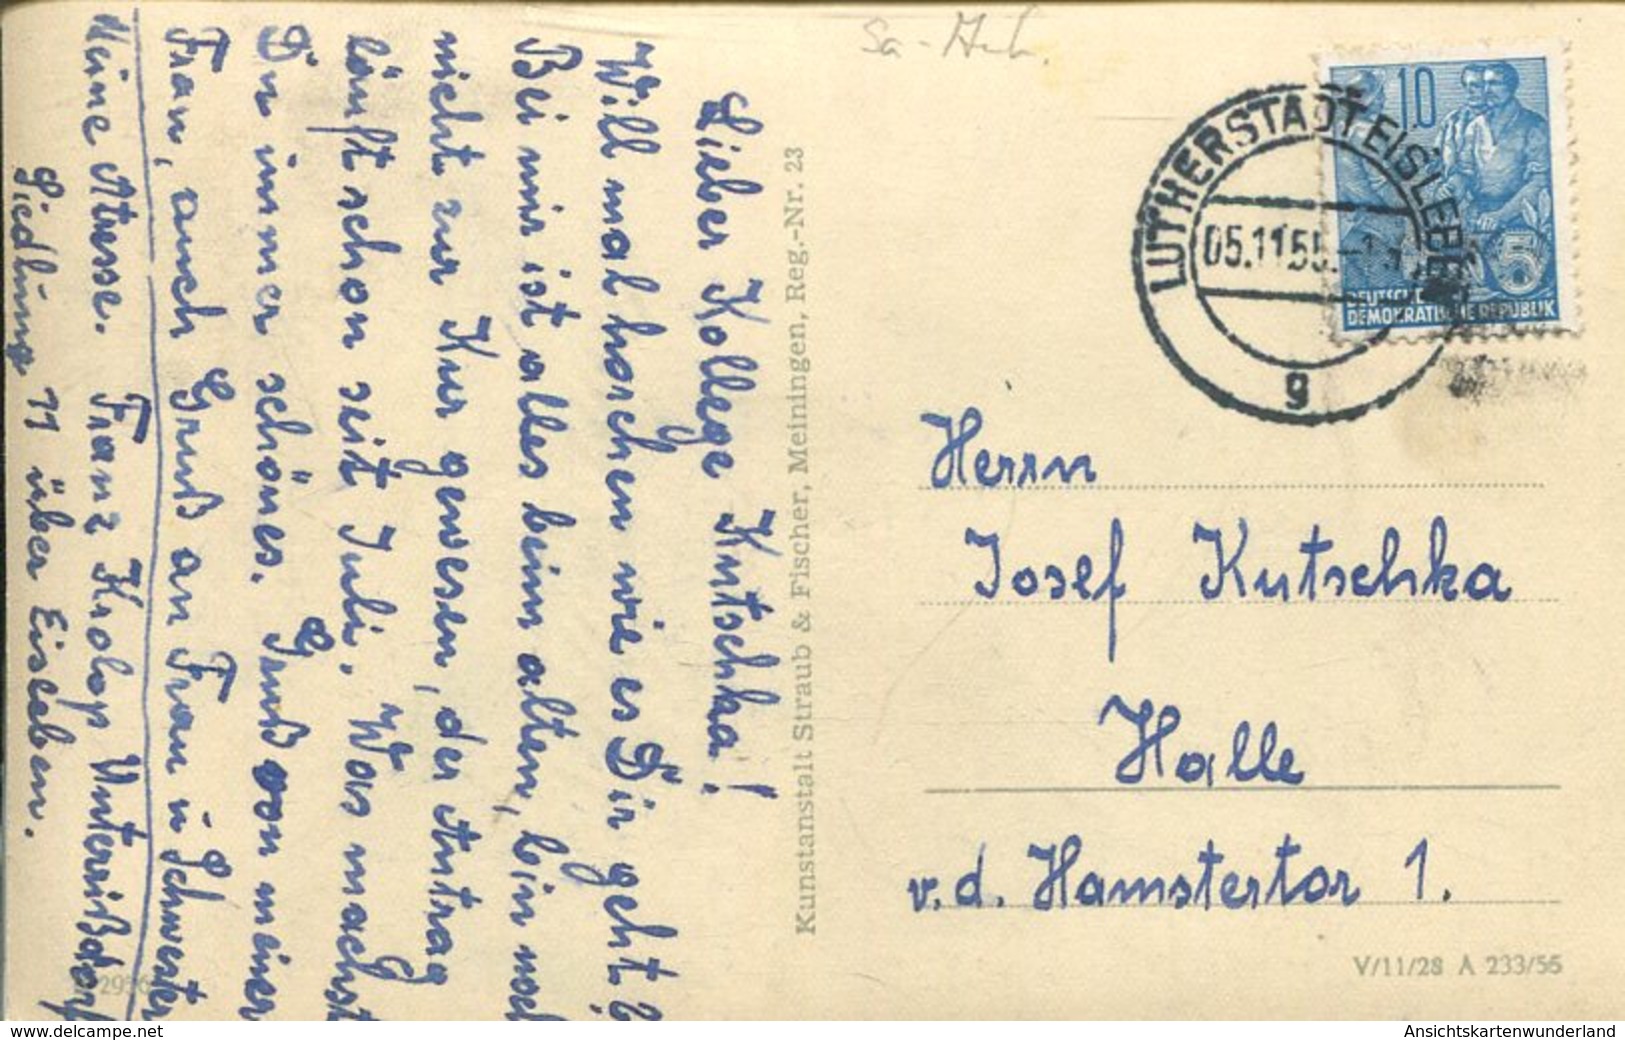 Lieber Kollege Kutschka!
Will mal horchen wie es Dir geht.
Bei mir ist alles beim alten, bin noch
nicht zur Kur gewesen, der Antrag
läuft schon seit Juli. Was machst
Du immer schönes. Gruß von meiner
Frau, auch Gruß an Frau u Schwester
Meine Atresse. Franz Krolop Unterrißdorf
Siedlung 11 über Eisleben.
Kunstanstalt Straub & Fischer, Meiningen, Reg.-Nr. 23
10
5
DEUTSCHE
DEMOKRATISCHE REPUBLIK
LUTHERSTADT EISLEBEN
05.11.55.
g
Herrn
Josef Kutschka
Halle
v.d. Hamstertor 1.
V/11/28 A 233/55
www.delcampe.net
Ansichtskartenwunderland